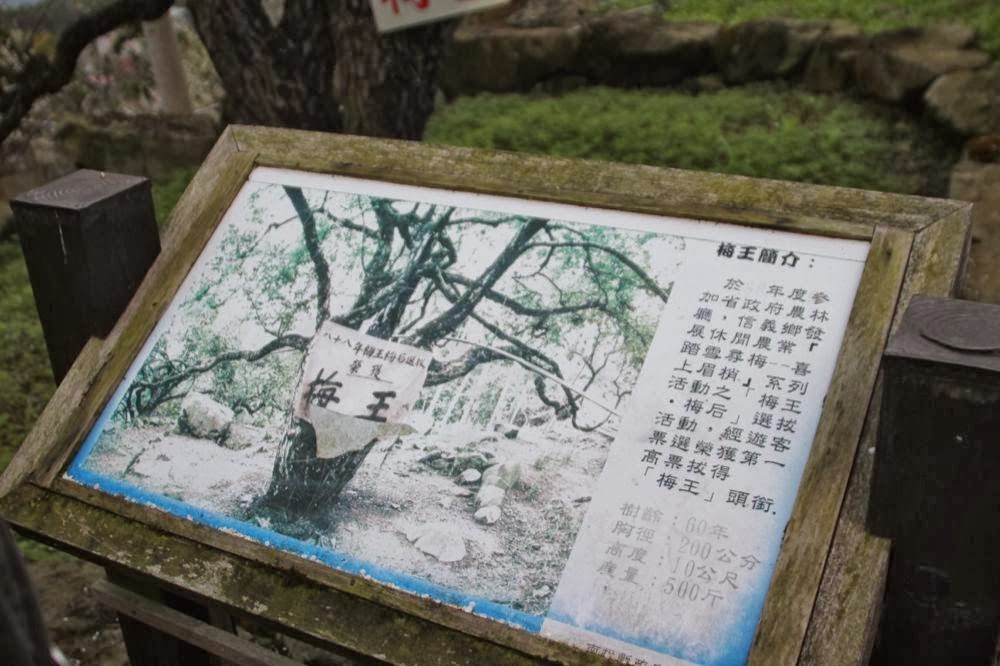 八十八年梅王梅后選拔
榮獲
梅王
梅王簡介:
於 年度參
加省政府農林
廳,信義鄉發
展休閒農業「
踏雪尋梅--喜
上眉梢」系列
活動之「梅王
・梅后」選拔
活動,經遊客
票選榮獲第一
高票拔得
「梅王」頭銜.
樹齡:60年
胸徑:200公分
高度:10公尺
產量:500斤